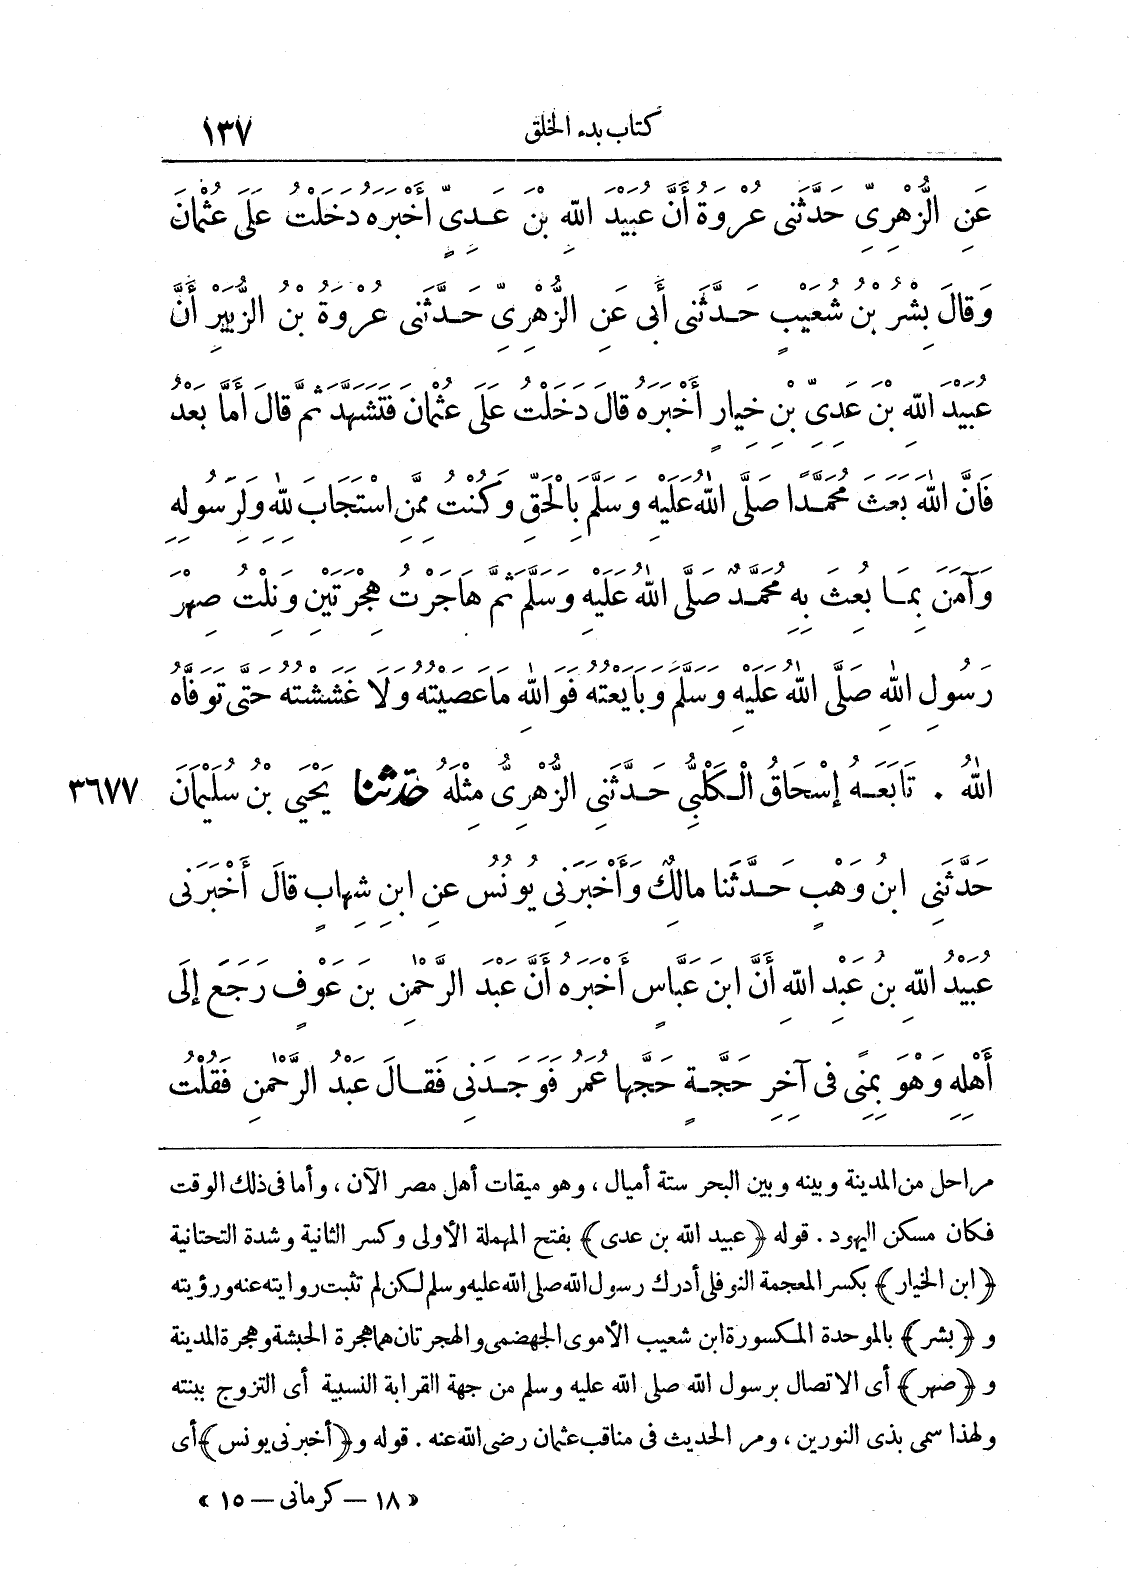 كتاب بدء الخلق ١٣٧
عَنِ الزُّهْرِىِّ حَدَّثَنِى عُرْوَةُ أَنَّ عُبَيْدَ اللّٰهِ بْنَ عَدِىٍّ أَخْبَرَهُ دَخَلْتُ عَلَى عُثْمَانَ
وَقَالَ بِشْرُ بْنُ شُعَيْبٍ حَدَّثَنِى أَبِى عَنِ الزُّهْرِىِّ حَدَّثَنِى عُرْوَةُ بْنُ الزُّبَيْرِ أَنَّ
عُبَيْدَ اللّٰهِ بْنَ عَدِىِّ بْنِ خِيَارٍ أَخْبَرَهُ قَالَ دَخَلْتُ عَلَى عُثْمَانَ فَتَشَهَّدَ ثُمَّ قَالَ أَمَّا بَعْدُ
فَانَّ اللّٰهَ بَعَثَ مُحَمَّدًا صَلَّى اللّٰهُ عَلَيْهِ وَسَلَّمَ بِالْحَقِّ وَكُنْتُ مِمَّنِ اسْتَجَابَ لِلّٰهِ وَلِرَسُولِهِ
وَآمَنَ بِمَا بُعِثَ بِهِ مُحَمَّدٌ صَلَّى اللّٰهُ عَلَيْهِ وَسَلَّمَ ثُمَّ هَاجَرْتُ هِجْرَتَيْنِ وَنِلْتُ صِهْرَ
رَسُولِ اللّٰهِ صَلَّى اللّٰهُ عَلَيْهِ وَسَلَّمَ وَبَايَعْتُهُ فَوَ اللّٰهِ مَا عَصَيْتُهُ وَلَا غَشَشْتُهُ حَتَّى تَوَفَّاهُ
اللّٰهُ . تَابَعَهُ إِسْحَاقُ الْكَلْبِىُّ حَدَّثَنِى الزُّهْرِىُّ مِثْلَهُ حَدَّثَنَا يَحْيَى بْنُ سُلَيْمَانَ ٣٦٧٧
حَدَّثَنِى ابْنُ وَهْبٍ حَدَّثَنَا مَالِكٌ وَأَخْبَرَنِى يُونُسُ عَنِ ابْنِ شِهَابٍ قَالَ أَخْبَرَنِى
عُبَيْدُ اللّٰهِ بْنُ عَبْدِ اللّٰهِ أَنَّ ابْنَ عَبَّاسٍ أَخْبَرَهُ أَنَّ عَبْدَ الرَّحْمٰنِ بْنَ عَوْفٍ رَجَعَ إِلَى
أَهْلِهِ وَهْوَ بِمِنًى فِى آخِرِ حَجَّةٍ حَجَّهَا عُمَرُ فَوَجَدَنِى فَقَالَ عَبْدُ الرَّحْمٰنِ فَقُلْتُ
مراحل من المدينة وبينه وبين البحر ستة أميال ، وهو ميقات أهل مصر الآن ، وأما فى ذلك الوقت
فكان مسكن اليهود . قوله ﴿عبيد الله بن عدى﴾ بفتح المهملة الأولى وكسر الثانية وشدة التحتانية
﴿ابن الخيار﴾ بكسر المعجمة النوفلى أدرك رسول الله صلى الله عليه وسلم لكن لم تثبت روايته عنه ورؤيته
و ﴿بشر﴾ بالموحدة المكسورة ابن شعيب الأموى الجهضمى والهجرتان هما هجرة الحبشة وهجرة المدينة
و ﴿صهر﴾ أى الاتصال برسول الله صلى الله عليه وسلم من جهة القرابة النسبية أى التزوج ببنته
ولهذا سمى بذى النورين ، ومر الحديث فى مناقب عثمان رضى الله عنه . قوله و﴿أخبرنى يونس﴾ أى
« ١٨ – كرمانى – ١٥ »